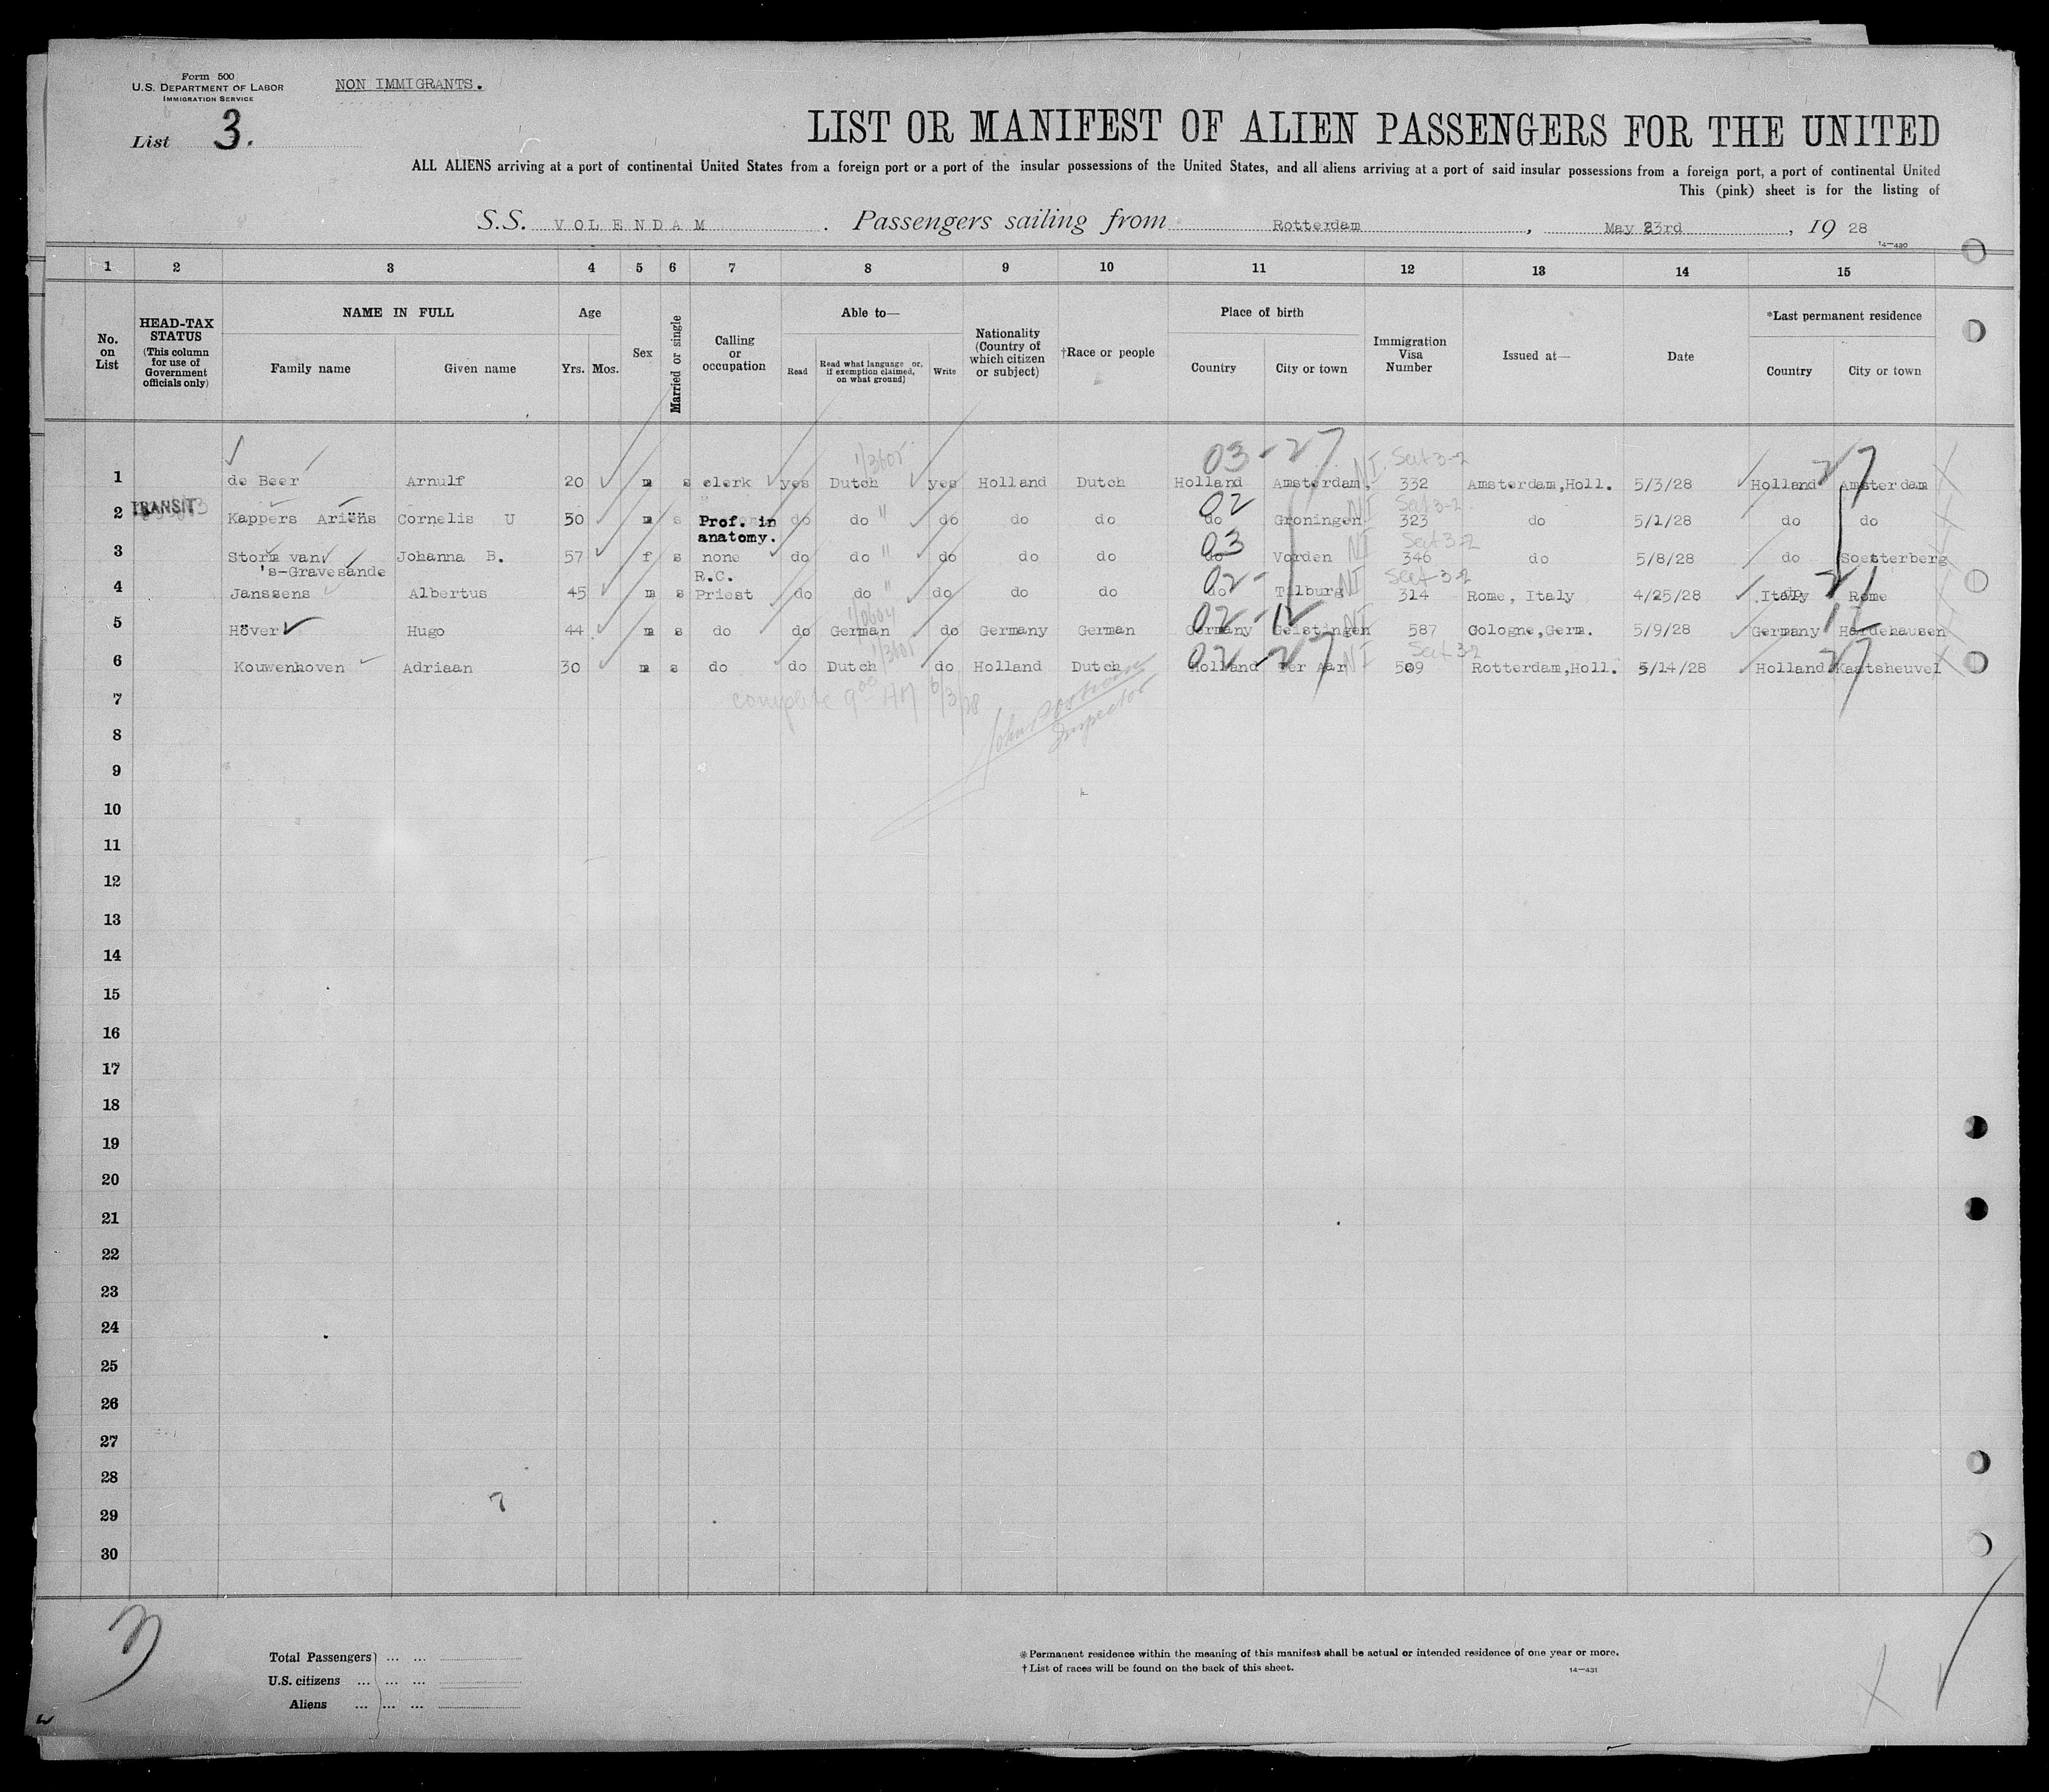 Form 500
U.S. DEPARTMENT OF LABOR
IMMIGRATION SERVICE
NON IMMIGRANTS.
List 3.
LIST OR MANIFEST OF ALIEN PASSENGERS FOR THE UNITED
ALL ALIENS arriving at a port of continental United States from a foreign port or a port of the insular possessions of the United States, and all aliens arriving at a port of said insular possessions from a foreign port, a port of continental United
This (pink) sheet is for the listing of
S.S. VOLENDAM. Passengers sailing from Rotterdam, May 23rd, 19 28
14—430
1 2 3 4 5 6 7 8 9 10 11 12 13 14 15
No. on List
HEAD-TAX STATUS (This column for use of Government officials only)
NAME IN FULL
Family name Given name
Age
Yrs. Mos.
Sex
Married or single
Calling or occupation
Able to—
Read Read what language or, if exemption claimed, on what ground) Write
Nationality (Country of which citizen or subject)
†Race or people
Place of birth
Country City or town
Immigration Visa Number
Issued at—
Date
*Last permanent residence
Country City or town
1/3605 03-27 NI Sect 3-2 27
1 de Beer Arnulf 20 m s clerk yes Dutch yes Holland Dutch Holland Amsterdam, 332 Amsterdam,Holl. 5/3/28 Holland Amsterdam
TRANSIT 02 NI Sect 3-2
2 Kappers Ariëns Cornelis U 50 m s Prof. in anatomy. do do " do do do do Groningen 323 do 5/1/28 do do
03 NI Sect 3-2
3 Storm van 's-Gravesande Johanna B. 57 f s none do do " do do do do Vorden 346 do 5/8/28 do Soesterberg
02- NI Sect 3-2 21
4 Janssens Albertus 45 m s R.C. Priest do do " do do do do Tilburg 314 Rome, Italy 4/25/28 Italy Rome
02-12 NI 12
5 Höver Hugo 44 m s do do German do Germany German Germany Geistingen 587 Cologne,Germ. 5/9/28 Germany Hardehausen
1/3605 02-27 NI Sect 3-2 27
6 Kouwenhoven Adriaan 30 m s do do Dutch do Holland Dutch Holland Ter Aar 509 Rotterdam,Holl. 5/14/28 Holland Kaatsheuvel
complete 9 00 AM 6/3/28
Inspector
7
8
9
10
11
12
13
14
15
16
17
18
19
20
21
22
23
24
25
26
27
28
29
30
3
Total Passengers ... ...
U.S. citizens ... ... ...
Aliens ... ... ...
* Permanent residence within the meaning of this manifest shall be actual or intended residence of one year or more.
† List of races will be found on the back of this sheet.
14—431